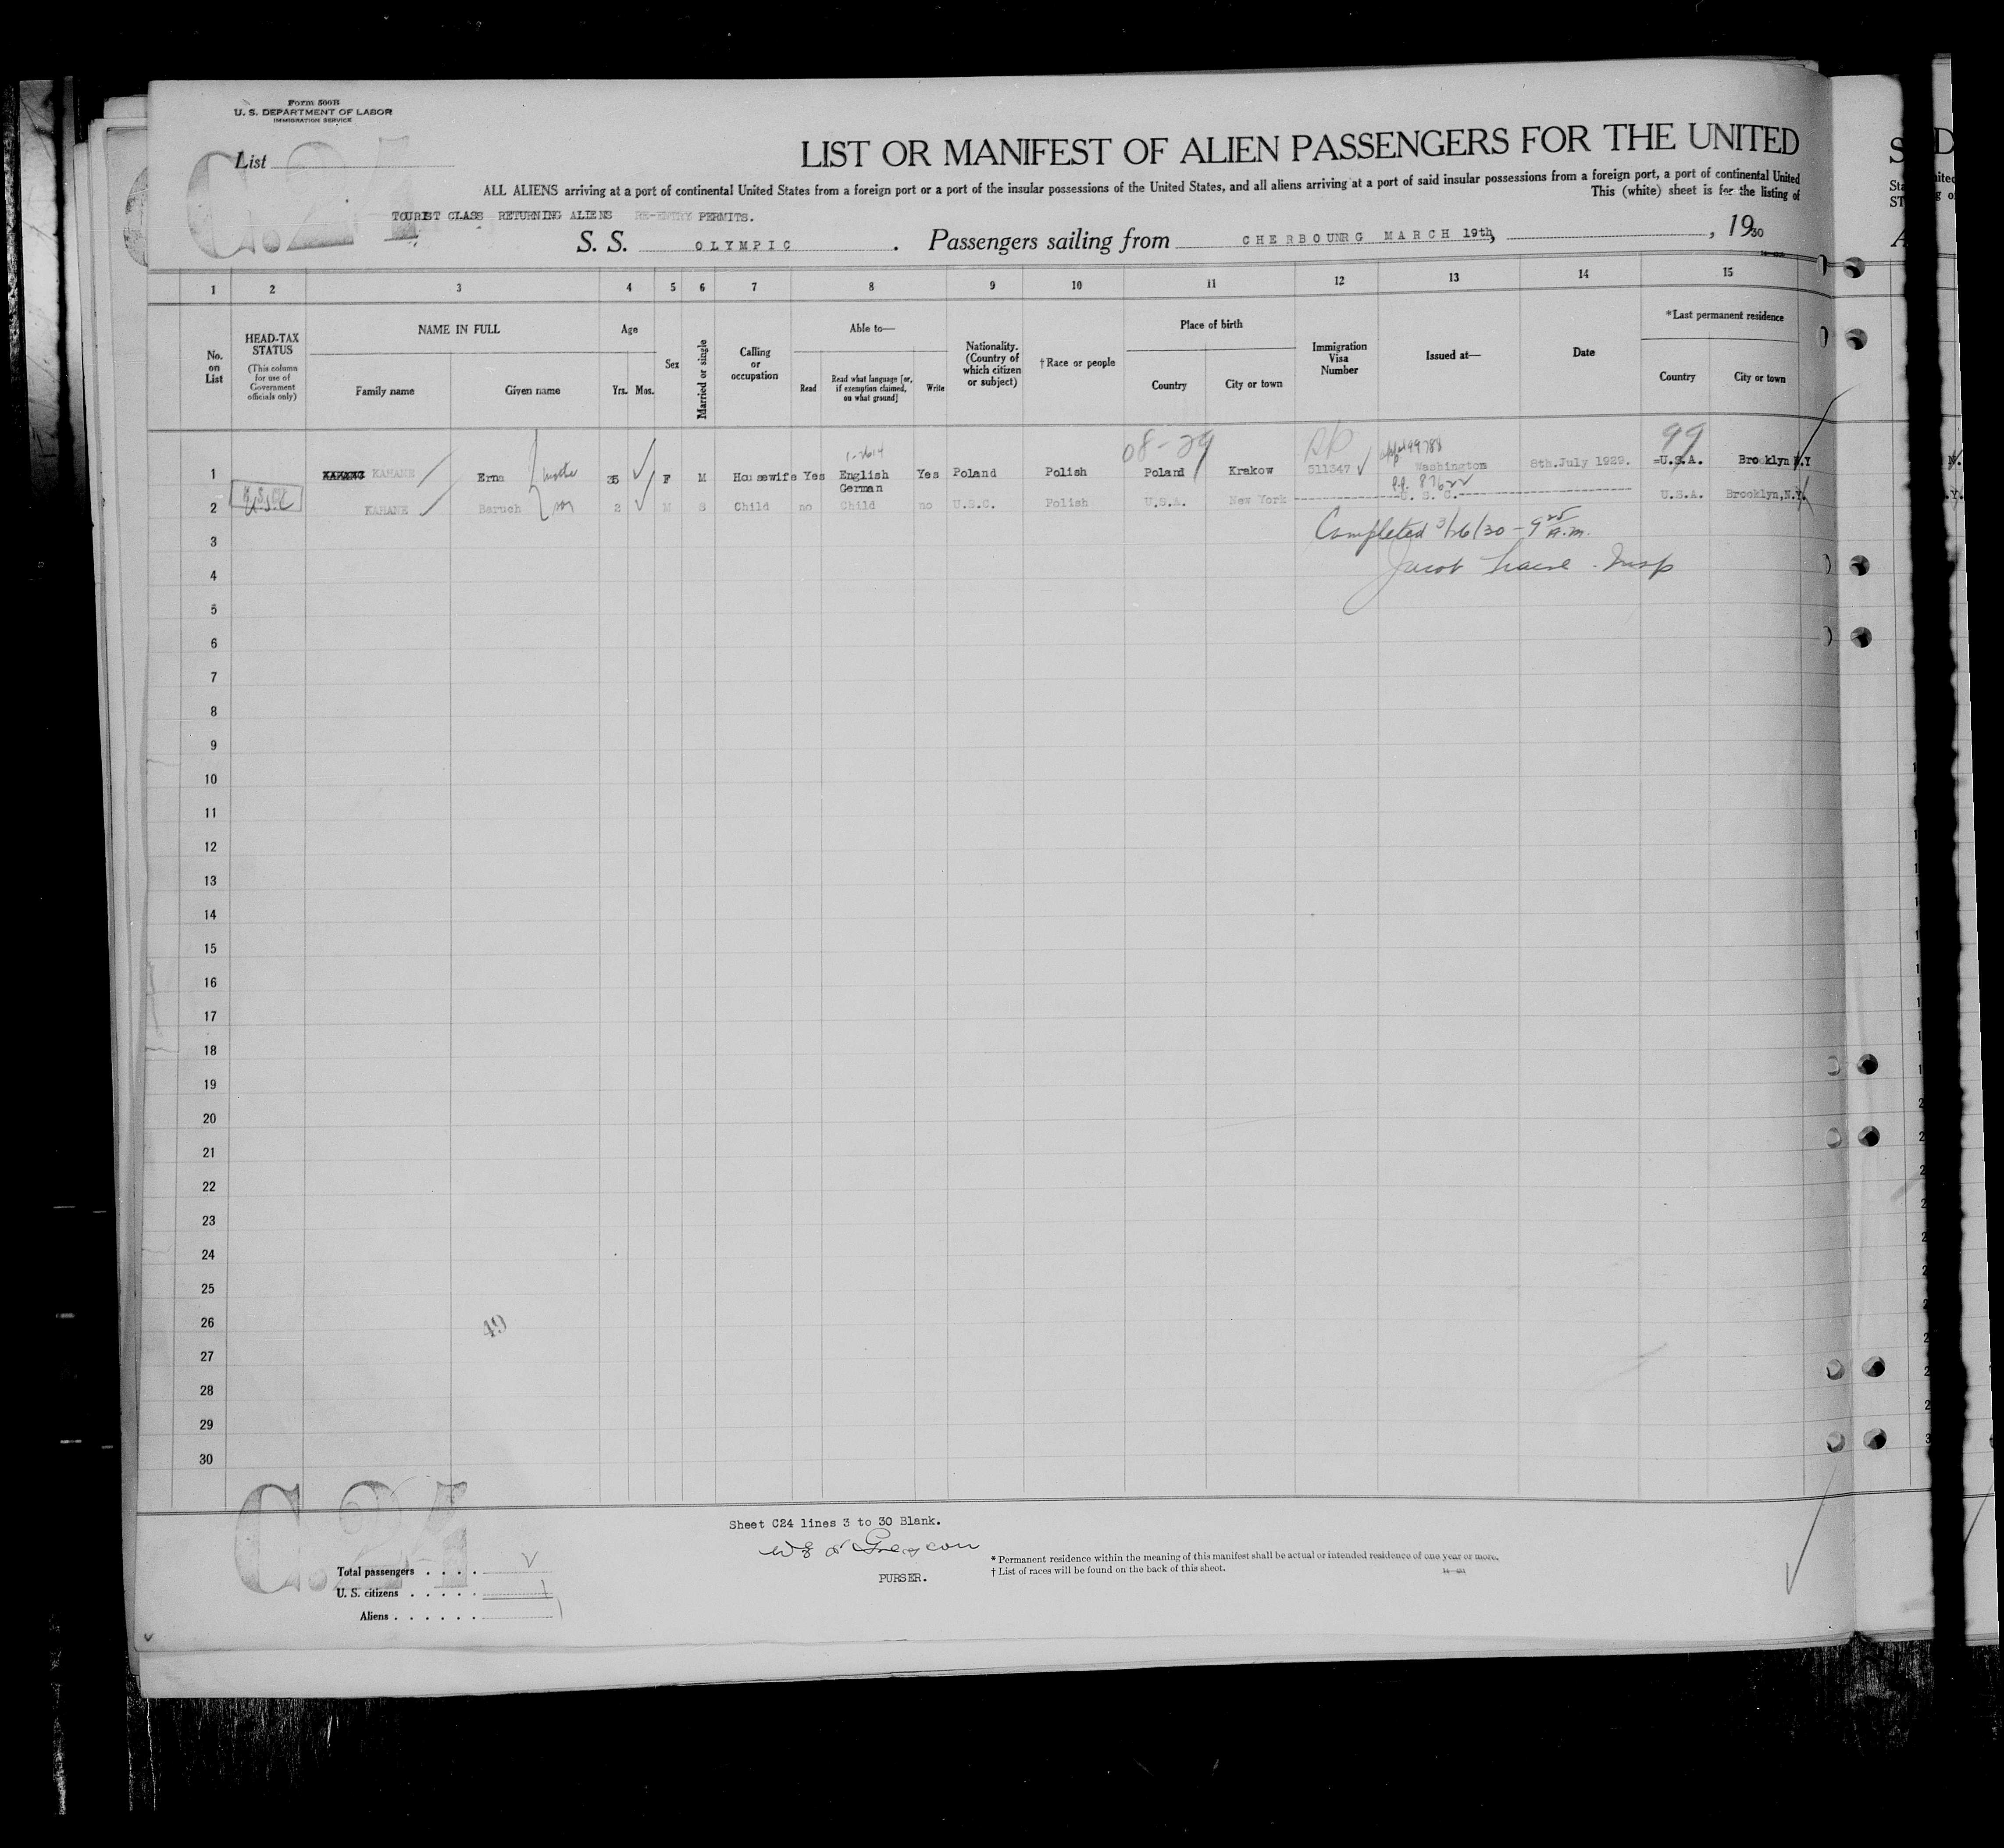 Form 500B
U. S. DEPARTMENT OF LABOR
IMMIGRATION SERVICE
List
C.24
LIST OR MANIFEST OF ALIEN PASSENGERS FOR THE UNITED
ALL ALIENS arriving at a port of continental United States from a foreign port or a port of the insular possessions of the United States, and all aliens arriving at a port of said insular possessions from a foreign port, a port of continental United
This (white) sheet is for the listing of
TOURIST CLASS RETURNING ALIENS RE-ENTRY PERMITS.
S. S. OLYMPIC . Passengers sailing from CHERBOURG MARCH 19th, , 1930
1 2 3 4 5 6 7 8 9 10 11 12 13 14 15
No. on List
HEAD-TAX STATUS (This column for use of Government officials only)
NAME IN FULL Family name Given name
Age Yrs. Mos.
Sex
Married or single
Calling or occupation
Able to— Read Read what language [or, if exemption claimed, on what ground] Write
Nationality. (Country of which citizen or subject)
†Race or people
Place of birth Country City or town
Immigration Visa Number
Issued at—
Date
*Last permanent residence Country City or town
08-29 99
1 KAHANE Erna mother 35 F M Housewife Yes English German Yes Poland Polish Poland Krakow 511347 Washington 8th.July 1929. U.S.A. Brooklyn N.Y
2 KAHANE Baruch son 2 M S Child no Child no U.S.C. Polish U.S.A. New York U. S. C. U.S.A. Brooklyn,N.Y.
Completed 3/26/30 - 9 25 A.M.
3
4
5
6
7
8
9
10
11
12
13
14
15
16
17
18
19
20
21
22
23
24
25
26
49
27
28
29
30
C.24
Sheet C24 lines 3 to 30 Blank.
PURSER.
* Permanent residence within the meaning of this manifest shall be actual or intended residence of one year or more.
† List of races will be found on the back of this sheet.
Total passengers
U. S. citizens 1
Aliens 1